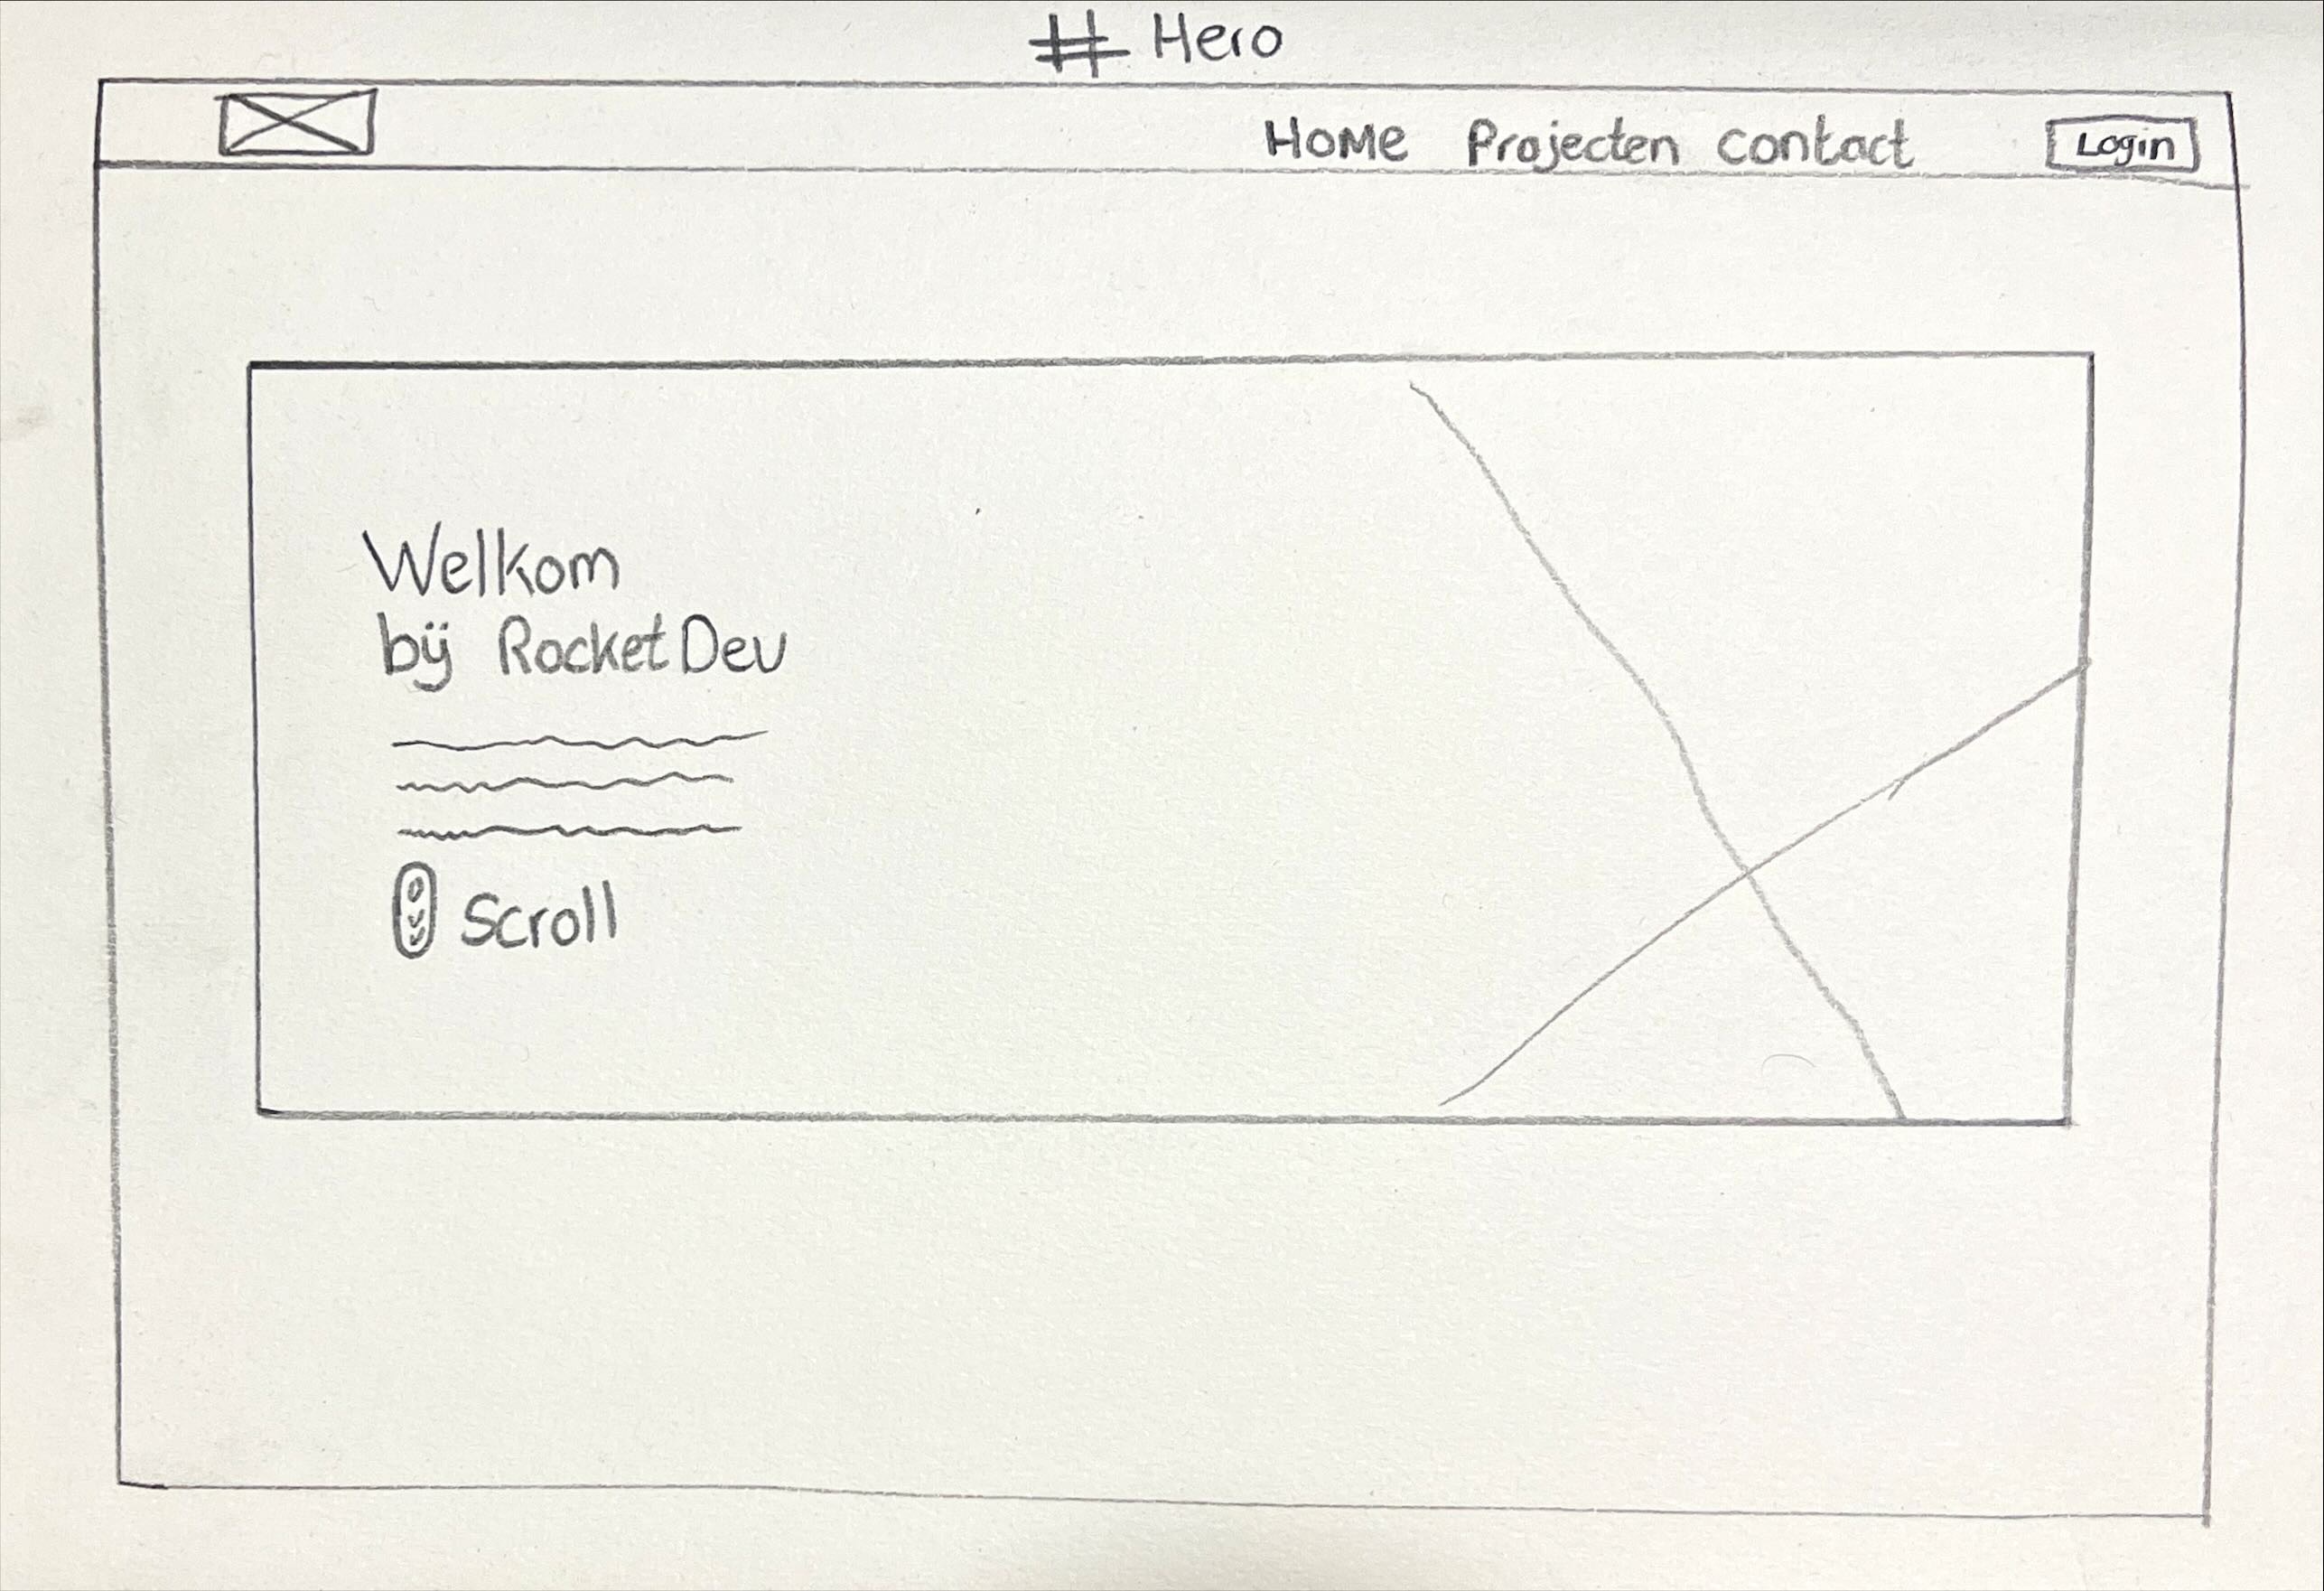 # Hero
Home Projecten contact Login
Welkom
bij RocketDev
Scroll